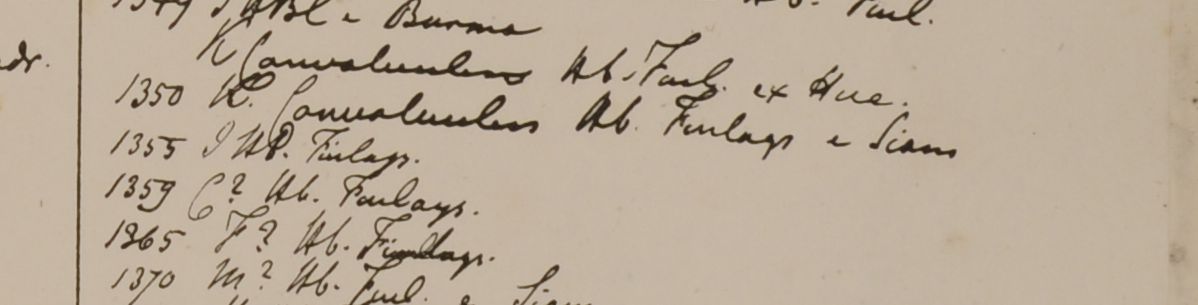 1349 J HBC e Burma Hb. Finl.
dr. K Convolvulus Hb. Finl. ex Hue.
1350 K. Convolvulus Hb. Finlays e Siam
1355 J HB. Finlays.
1359 C? Hb. Finlays.
1365 F? Hb. Finlays.
1370 M? Hb. Finl. e Siam